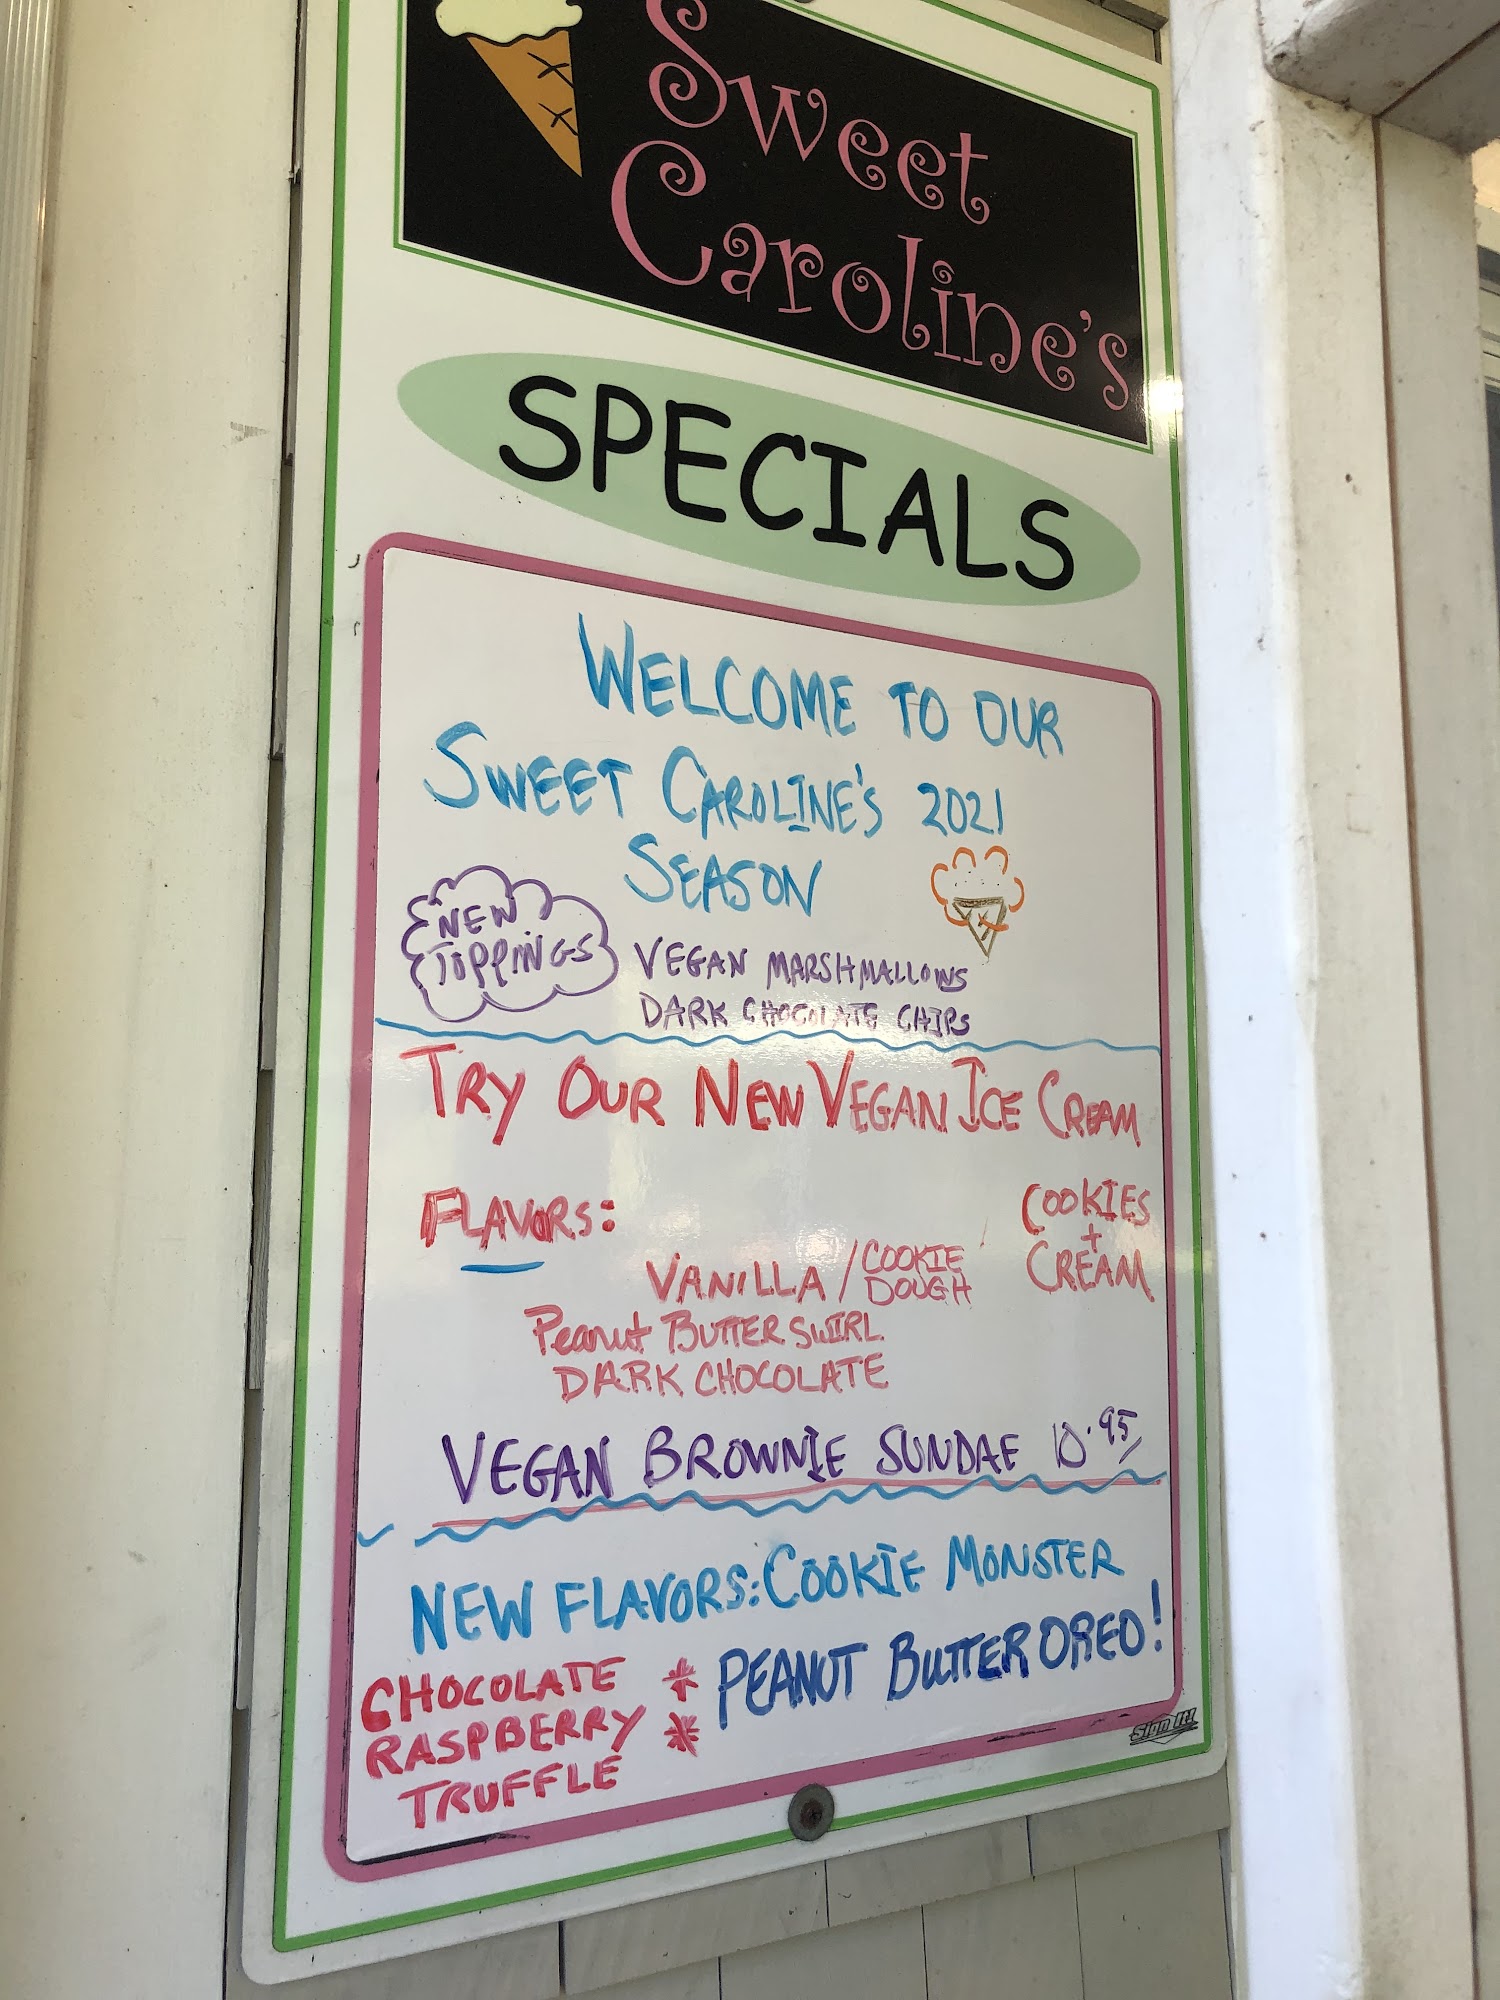 Sweet
Caroline's
SPECIALS
WELCOME TO OUR
SWEET CAROLINE'S 2021
SEASON
NEW
TOPPINGS
VEGAN MARSHMALLOWS
DARK CHOCOLATE CHIPS
TRY OUR NEW VEGAN ICE CREAM
FLAVORS:
VANILLA / COOKIE
DOUGH
COOKIES
+
CREAM
Peanut BUTTER SWIRL
DARK CHOCOLATE
VEGAN BROWNIE SUNDAE 10.95
NEW FLAVORS: COOKIE MONSTER
CHOCOLATE *
RASPBERRY *
TRUFFLE
PEANUT BUTTER OREO!
Sign It!